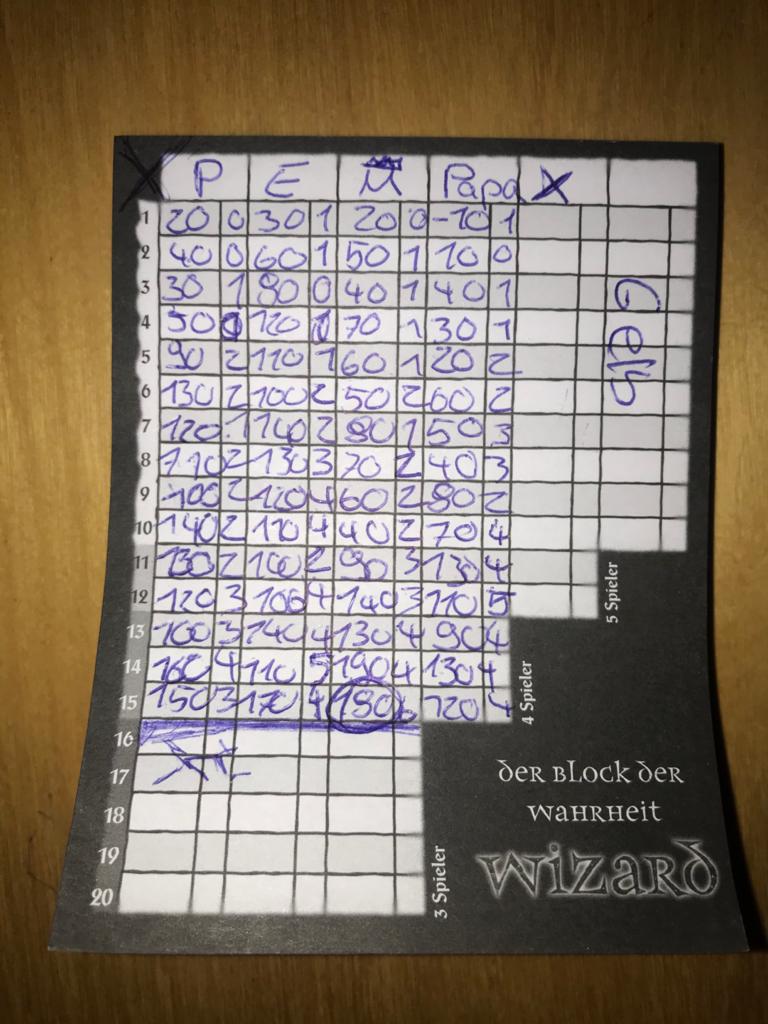 X P E M Papa X
1 20 0 30 1 20 0 -10 1
2 40 0 60 1 50 1 10 0
3 30 1 80 0 40 1 40 1
4 50 0 120 70 1 30 1
5 90 2 110 1 60 1 20 2
6 130 2 100 2 50 2 60 2
7 120 1 140 2 80 1 50 3
8 110 2 130 3 70 2 40 3
9 100 2 120 4 60 2 80 2
10 140 2 110 4 40 2 70 4
11 130 2 100 2 90 3 130 4
12 120 3 100 4 140 3 110 5
13 100 3 140 4 130 4 90 4
14 160 4 110 5 190 4 130 4
15 150 3 170 4 180 6 120 4
16
17
18
19
20
Gelb
5 Spieler
4 Spieler
3 Spieler
der Block der
Wahrheit
Wizard